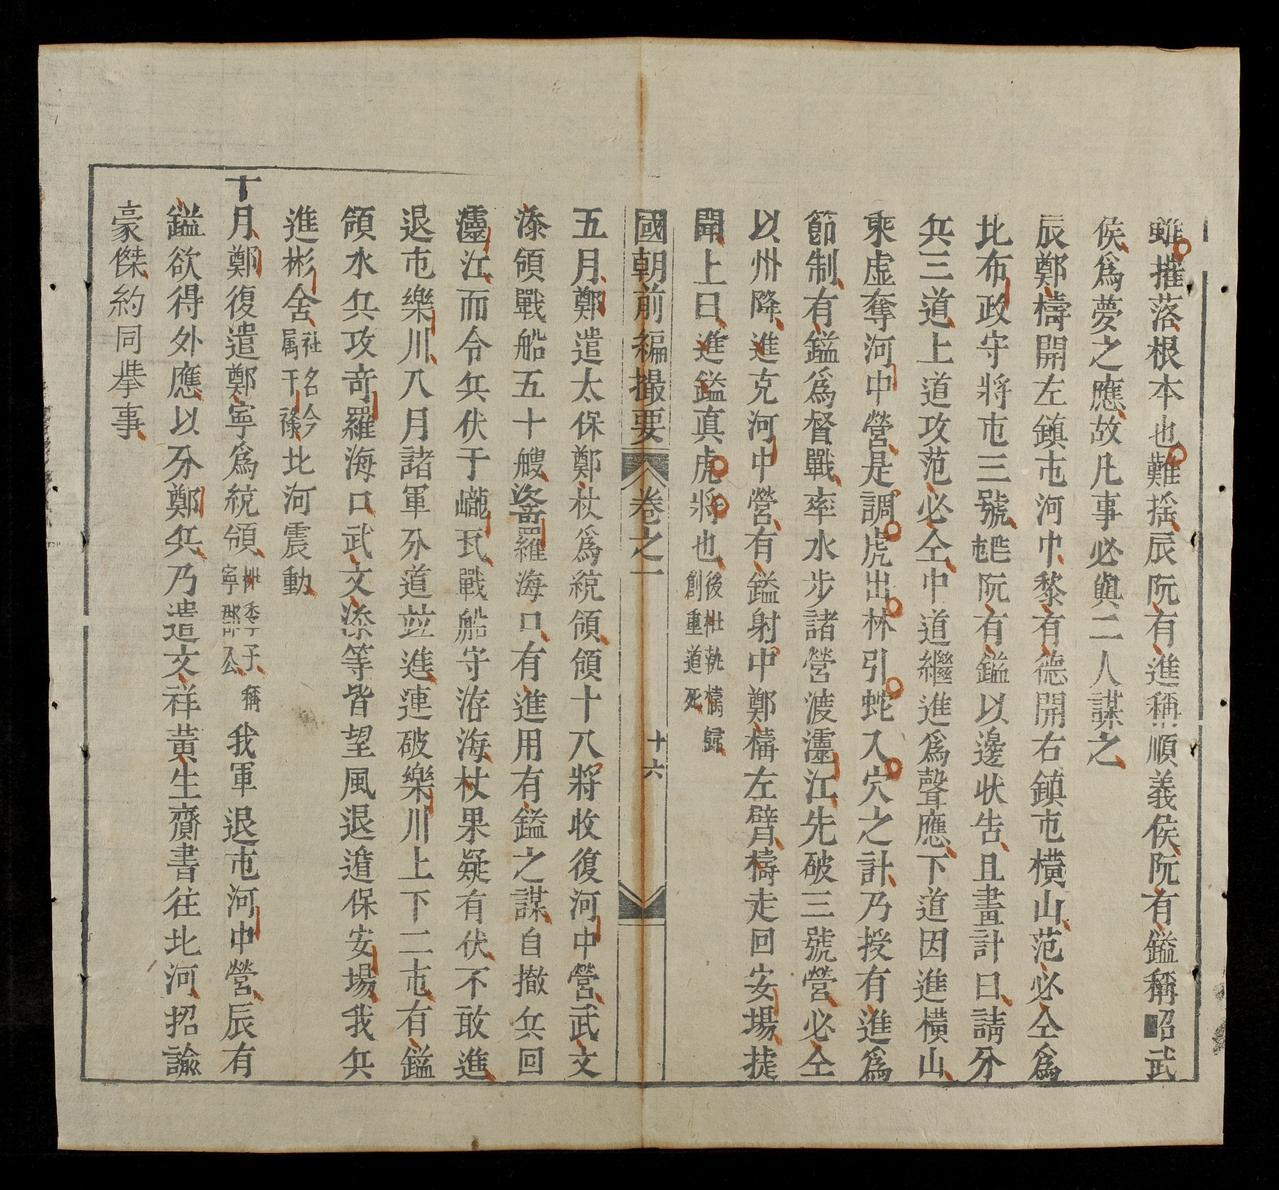 雖摧落根本也難搖辰阮有進稱順義侯阮有鎰稱昭武
侯爲夢之應故凡事必與二人謀之
辰鄭檮開左鎮屯河中黎有德開右鎮屯橫山范必仝爲
北布政守將屯三號𡊰阮有鎰以邊狀吿且畫計曰請分
兵三道上道攻范必仝中道繼進爲聲應下道因進橫山
乘虛奪河中營是調虎出林引蛇入穴之計乃授有進爲
節制有鎰爲督戰率水步諸營渡𤅷江先破三號營必仝
以州降進克河中營有鎰射中鄭檮左臂檮走回安場捷
聞上曰進鎰真虎將也後杜執檮歸創重道死
國朝前編撮要 卷之一 十六
五月鄭遣太保鄭杖爲統領領十八將收復河中營武文
添領戰船五十艘盜羅海口有進用有鎰之謀自撤兵回
𤅷江而令兵伏于巄珉戰船守洊海杖果疑有伏不敢進
退屯樂川八月諸軍分道並進連破樂川上下二屯有鎰
領水兵攻奇羅海口武文添等皆望風退遁保安場我兵
進彬舍社名今属干祿北河震動
十月鄭復遣鄭寧爲統領柞季子稱寧郡公我軍退屯河中營辰有
鎰欲得外應以分鄭兵乃遣文祥黃生齎書往北河招諭
豪傑約同舉事